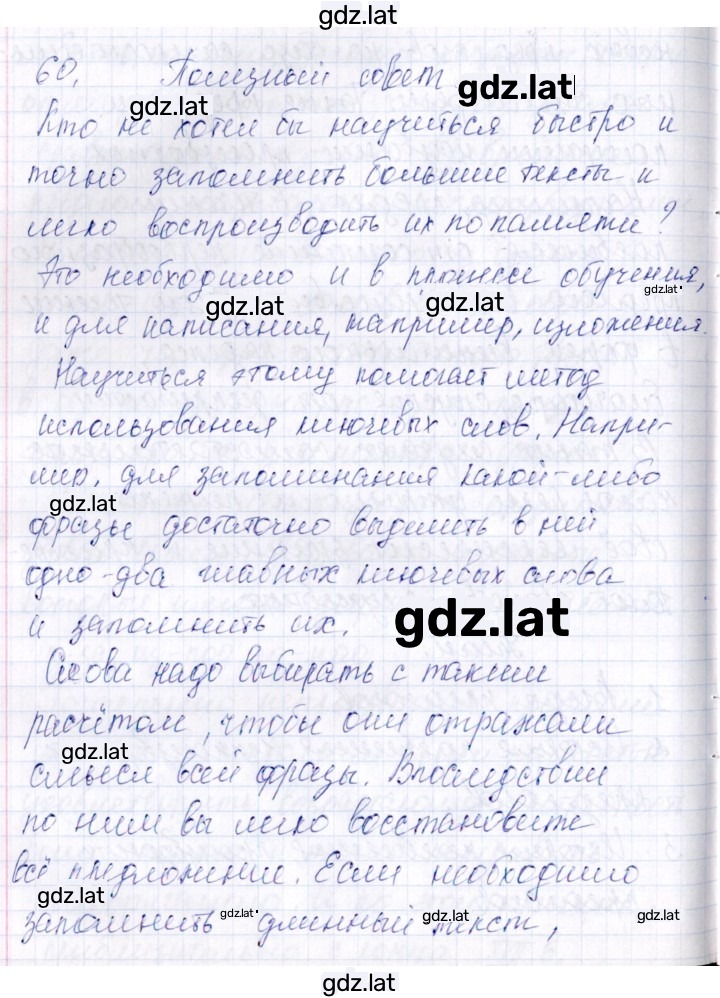 gdz.lat
60. Полезный совет
gdz.lat
gdz.lat
Кто не хотел бы научиться быстро и
точно запомнить большие тексты и
легко воспроизводить их по памяти?
Это необходимо, и в процессе обучения,
gdz.lat
gdz.lat
gdz.lat
и для написания, например, изложения.
Научиться этому помогает метод
использования ключевых слов. Напри-
мер, для запоминания какой-либо
gdz.lat
фразы достаточно выделить в ней
одно-два главных ключевых слова
и запомнить их.
gdz.lat
Слова надо выбирать с таким
расчётом, чтобы они отражали
gdz.lat
смысл всей фразы. Впоследствии
по ним вы легко восстановите
всё предложение. Если необходимо
gdz.lat
запомнить длинный текст,
gdz.lat
gdz.lat
gdz.lat
gdz.lat